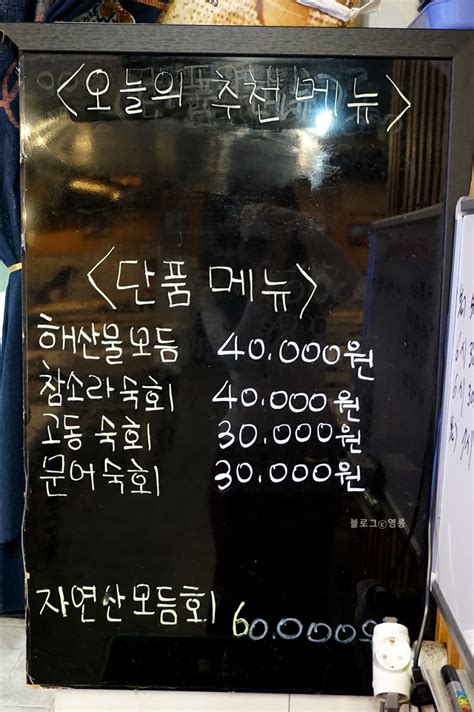 <오늘의 추천 메뉴>
<단품 메뉴>
해산물모듬 40.000원
참소라숙회 40.000원
고동숙회 30.000원
문어숙회 30.000원
블로그ⓒ영롱
자연산모듬회 60.000원